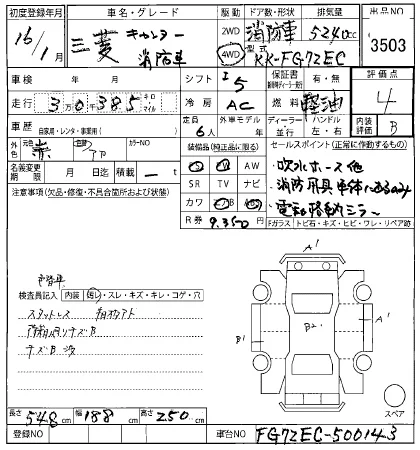 初度登録年月 車名・グレード 駆動 ドア数・形状 排気量 出品NO
16/1月 三菱 キャンター 消防車 2WD 4WD 消防車 5240cc 3503
型式 KK-FG72EC
車検 年 月 シフト I5 保証書 有・無 評価点
走行 3万0千385 キロ マイル 冷房 AC 燃料 軽油 4
車歴 自家用・レンタ・事業用( ) 定員 6人 外車モデル 年 ディーラー ハンドル 左・右 内装評価 B
外色 赤 内色 カラーNO 装備品(純正品に限る) セールスポイント(正常に作動するもの)
名義変更期限 月 日迄 積載 ー t AW ・吹水ホース他
注意事項(欠品・修復・不具合箇所および状態) SR TV ナビ ・消防用具
カワ ・電動格納ミラー
R券 9,350円 Fガラス トビ石・キズ・ヒビ・ワレ・リペア跡
検査員記入 内装 ・スレ・キズ・キレ・コゲ・穴
スタットレス
キズB
A1
B1 B2 A1
A1
スペア
長さ 548cm 幅 188cm 高さ 250cm
登録NO 車台NO FG72EC-500143